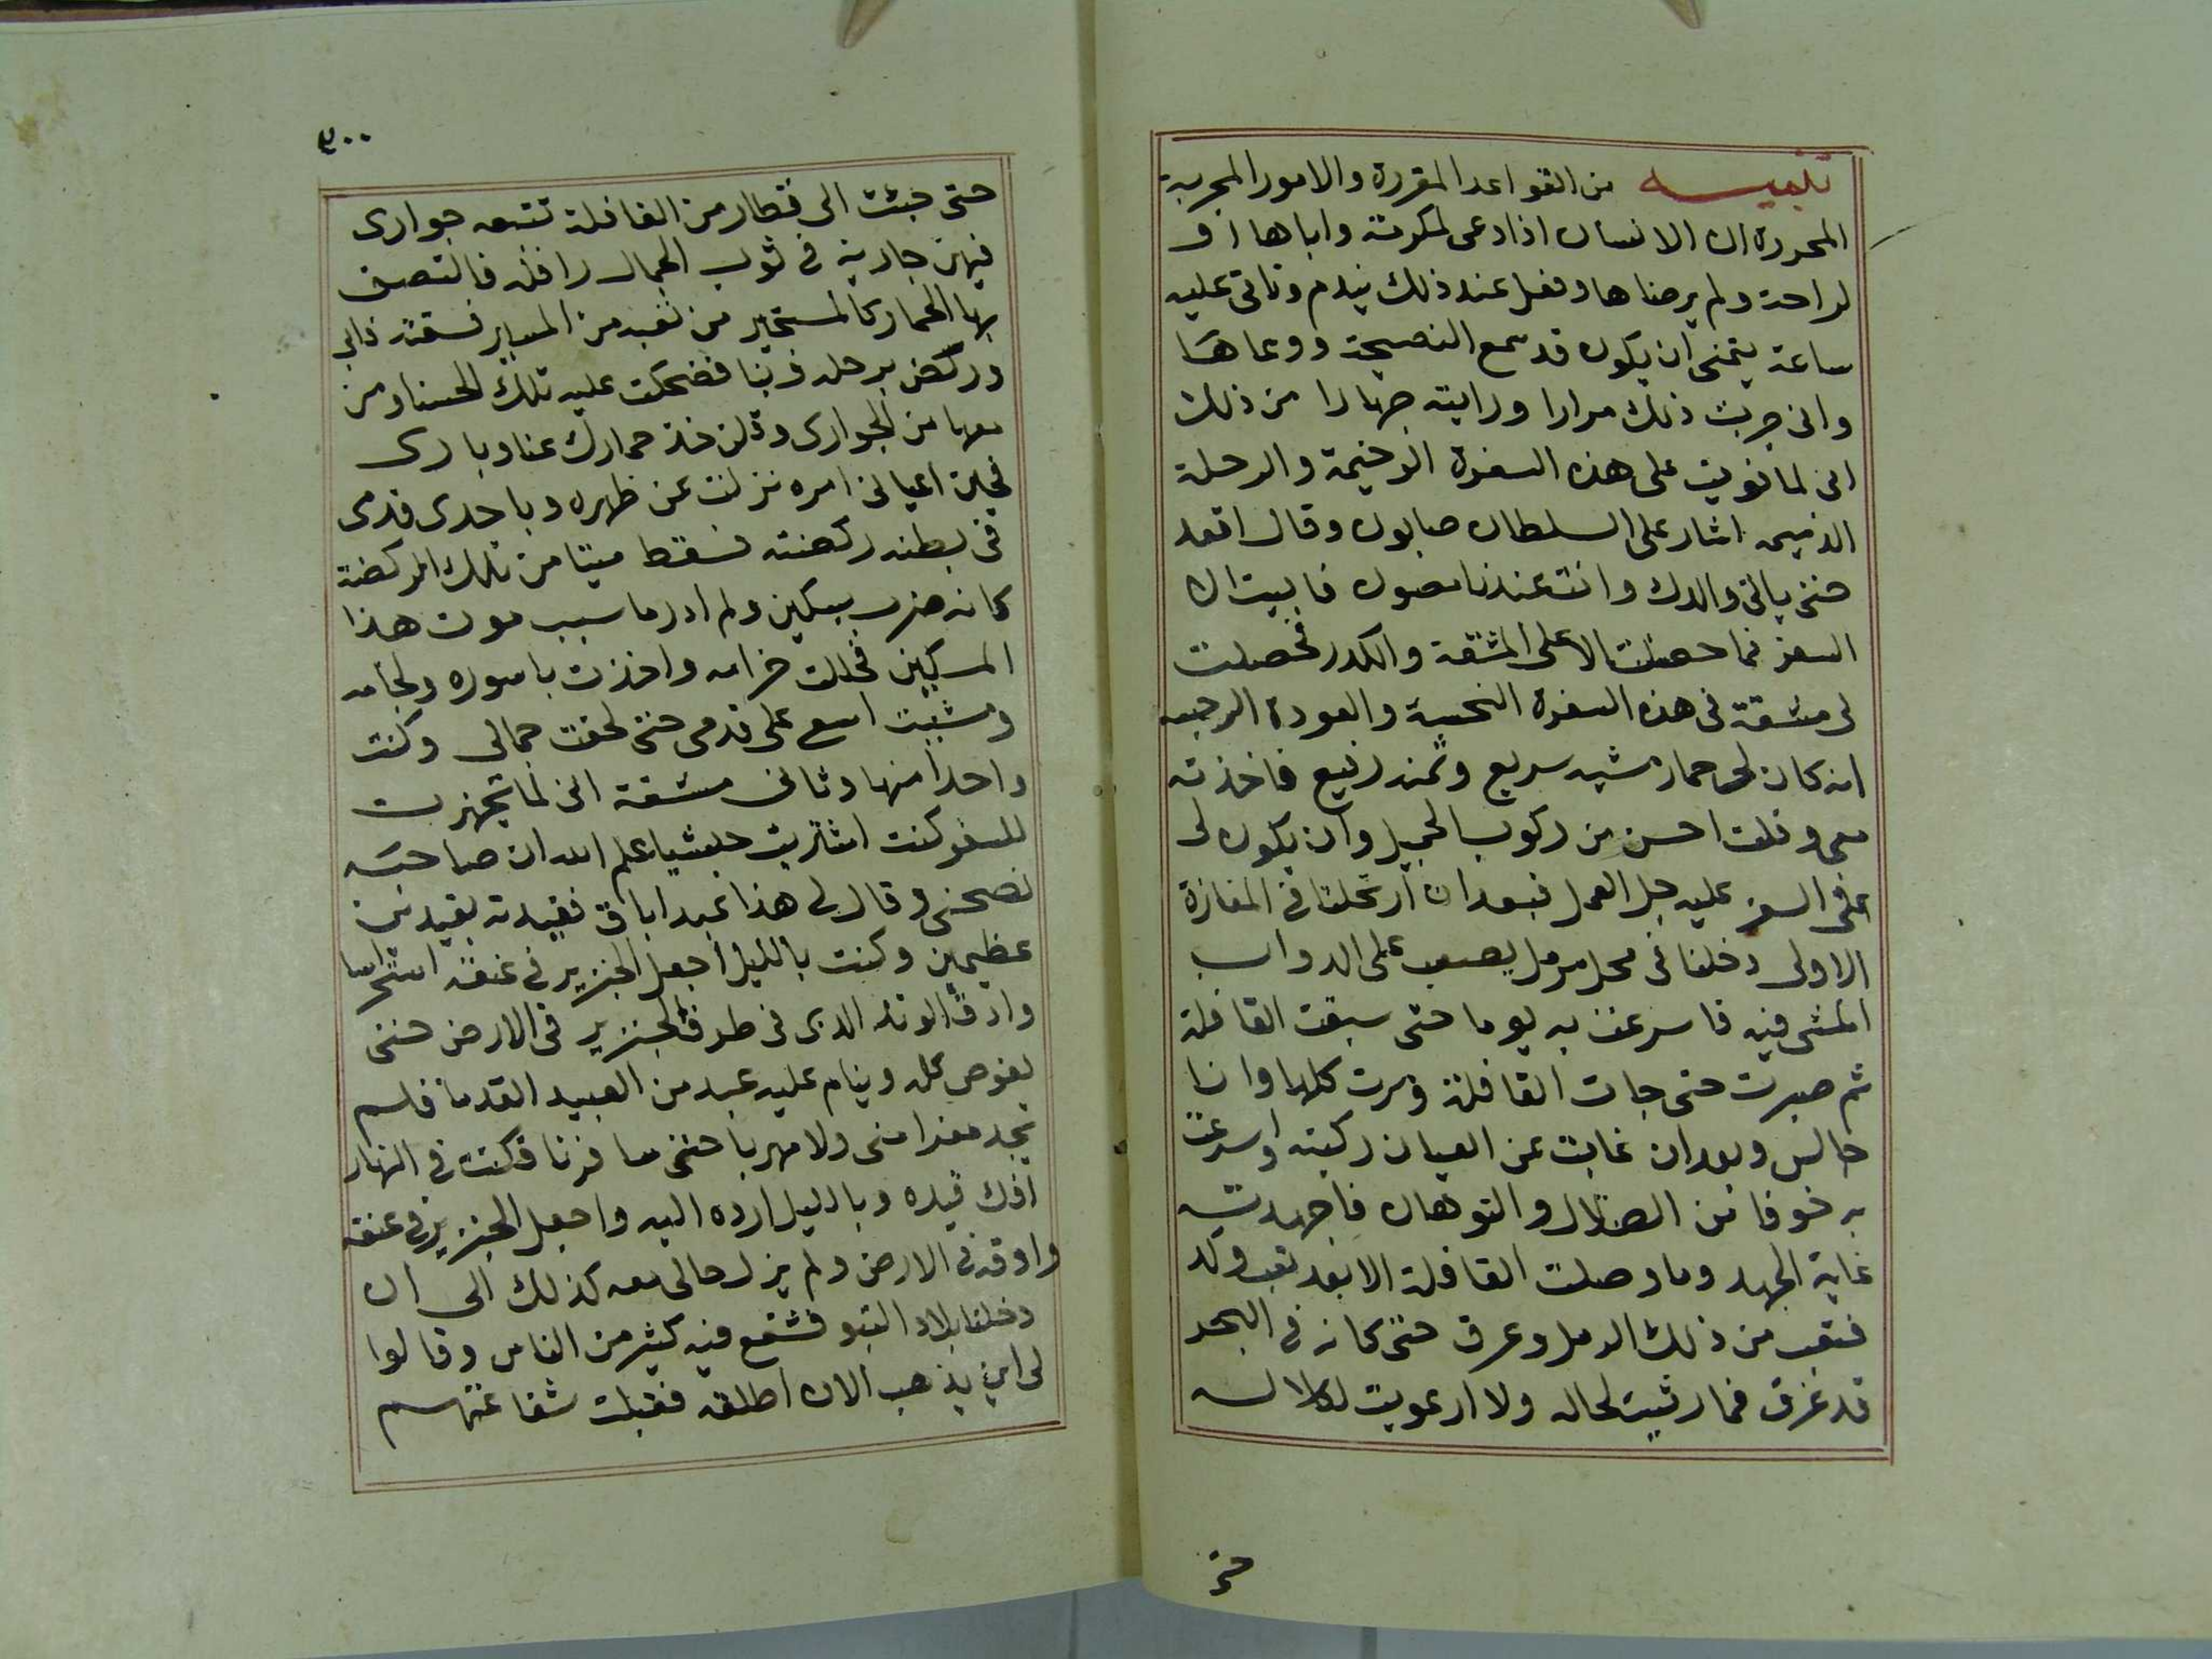 تنبيه من القواعد المقررة والامور المجربة
المحررة ان الانسان اذا دعى لمكرمة واباها او
لراحة ولم يرضاها وفعل عند ذلك يندم وتاتى عليه
ساعة يتمنى ان يكون قد سمع النصيحة ووعاها
وانى جربت ذلك مرارا ورايته جهارا من ذلك
انى لما نويت على هذه السفرة الوخيمة والرحلة
الذميمه اشار على السلطان صابون وقال اقعد
حتى ياتى والدك وانت عندنا مصون فابيت الا
السفر فما حصلت الا على المشقة والكدر فحصلت
لى مشقة فى هذه السفرة النحسة والعودة الرجسه
انه كان لى حمار مشيه سريع وثمنه رفيع فاخذته
معى وقلت احسن من ركوب الجمل وان يكون لى
فى السفر عليه جل العمل فبعد ان ارتحلنا فى المفازة
الاولى دخلنا فى محل مرمل يصعب على الدواب
المشى فيه فاسرعت به يوما حتى سبقت القافلة
ثم صبرت حتى جات القافلة ومرت كلها وانا
جالس وبعد ان غابت عن العيان ركبته واسرعت
به خوفا من الضلال والتوهان فاجهدته
غاية الجهد وما وصلت القافلة الا بعد تعب وكد
فتعب من ذلك الرمل وعرق حتى كانه فى البحر
قد غرق فما رثيت لحاله ولا ارعويت لكلاله
حتى
٣٠٠
حتى جئت الى قطار من القافلة تتبعه جوارى
فيهن جارية فى ثوب الجمال رافله فالتصق
بها الحمار كالمستجير من تعبه من المسير فسقته فابى
وركض برجله وربنا فضحكت عليه تلك الحسنا ومن
معها من الجوارى وقلن خذ حمارك عنا وبارى
فحين اعيانى امره نزلت عن ظهره وباحدى قدمى
فى بطنه ركضته فسقط ميتا من تلك الركضة
كانه ضرب بسكين ولم ادر ما سبب موت هذا
المسكين فحللت حزامه واخذت باسوره ولجامه
ومشيت اسع على قدمى حتى لحقت جمالى وركبت
واحدا منها وثانى مشقة انى لما تجهزت
للسفر كنت اشتريت عبدا علم الله ان صاحبه
نصحنى وقال لى هذا عبد اباق فقيدته بقيدين
عظيمين وكنت بالليل اجعل الجنزير فى عنقه احتراسا
وادق الوتد الذى فى طرف الجنزير فى الارض حتى
يغوص كله وينام عليه عبد من العبيد القدما فلم
يجد مفرا منى ولا مهربا حتى سافرنا فكنت فى النهار
افك قيده وبالليل ارده اليه واجعل الجنزير فى عنقه
وادقه فى الارض ولم يزل حالى معه كذلك الى ان
دخلنا بلاد التبو فشفع فيه كثير من الناس وقالوا
لى اين يذهب الان اطلقه فقبلت شفاعتهم